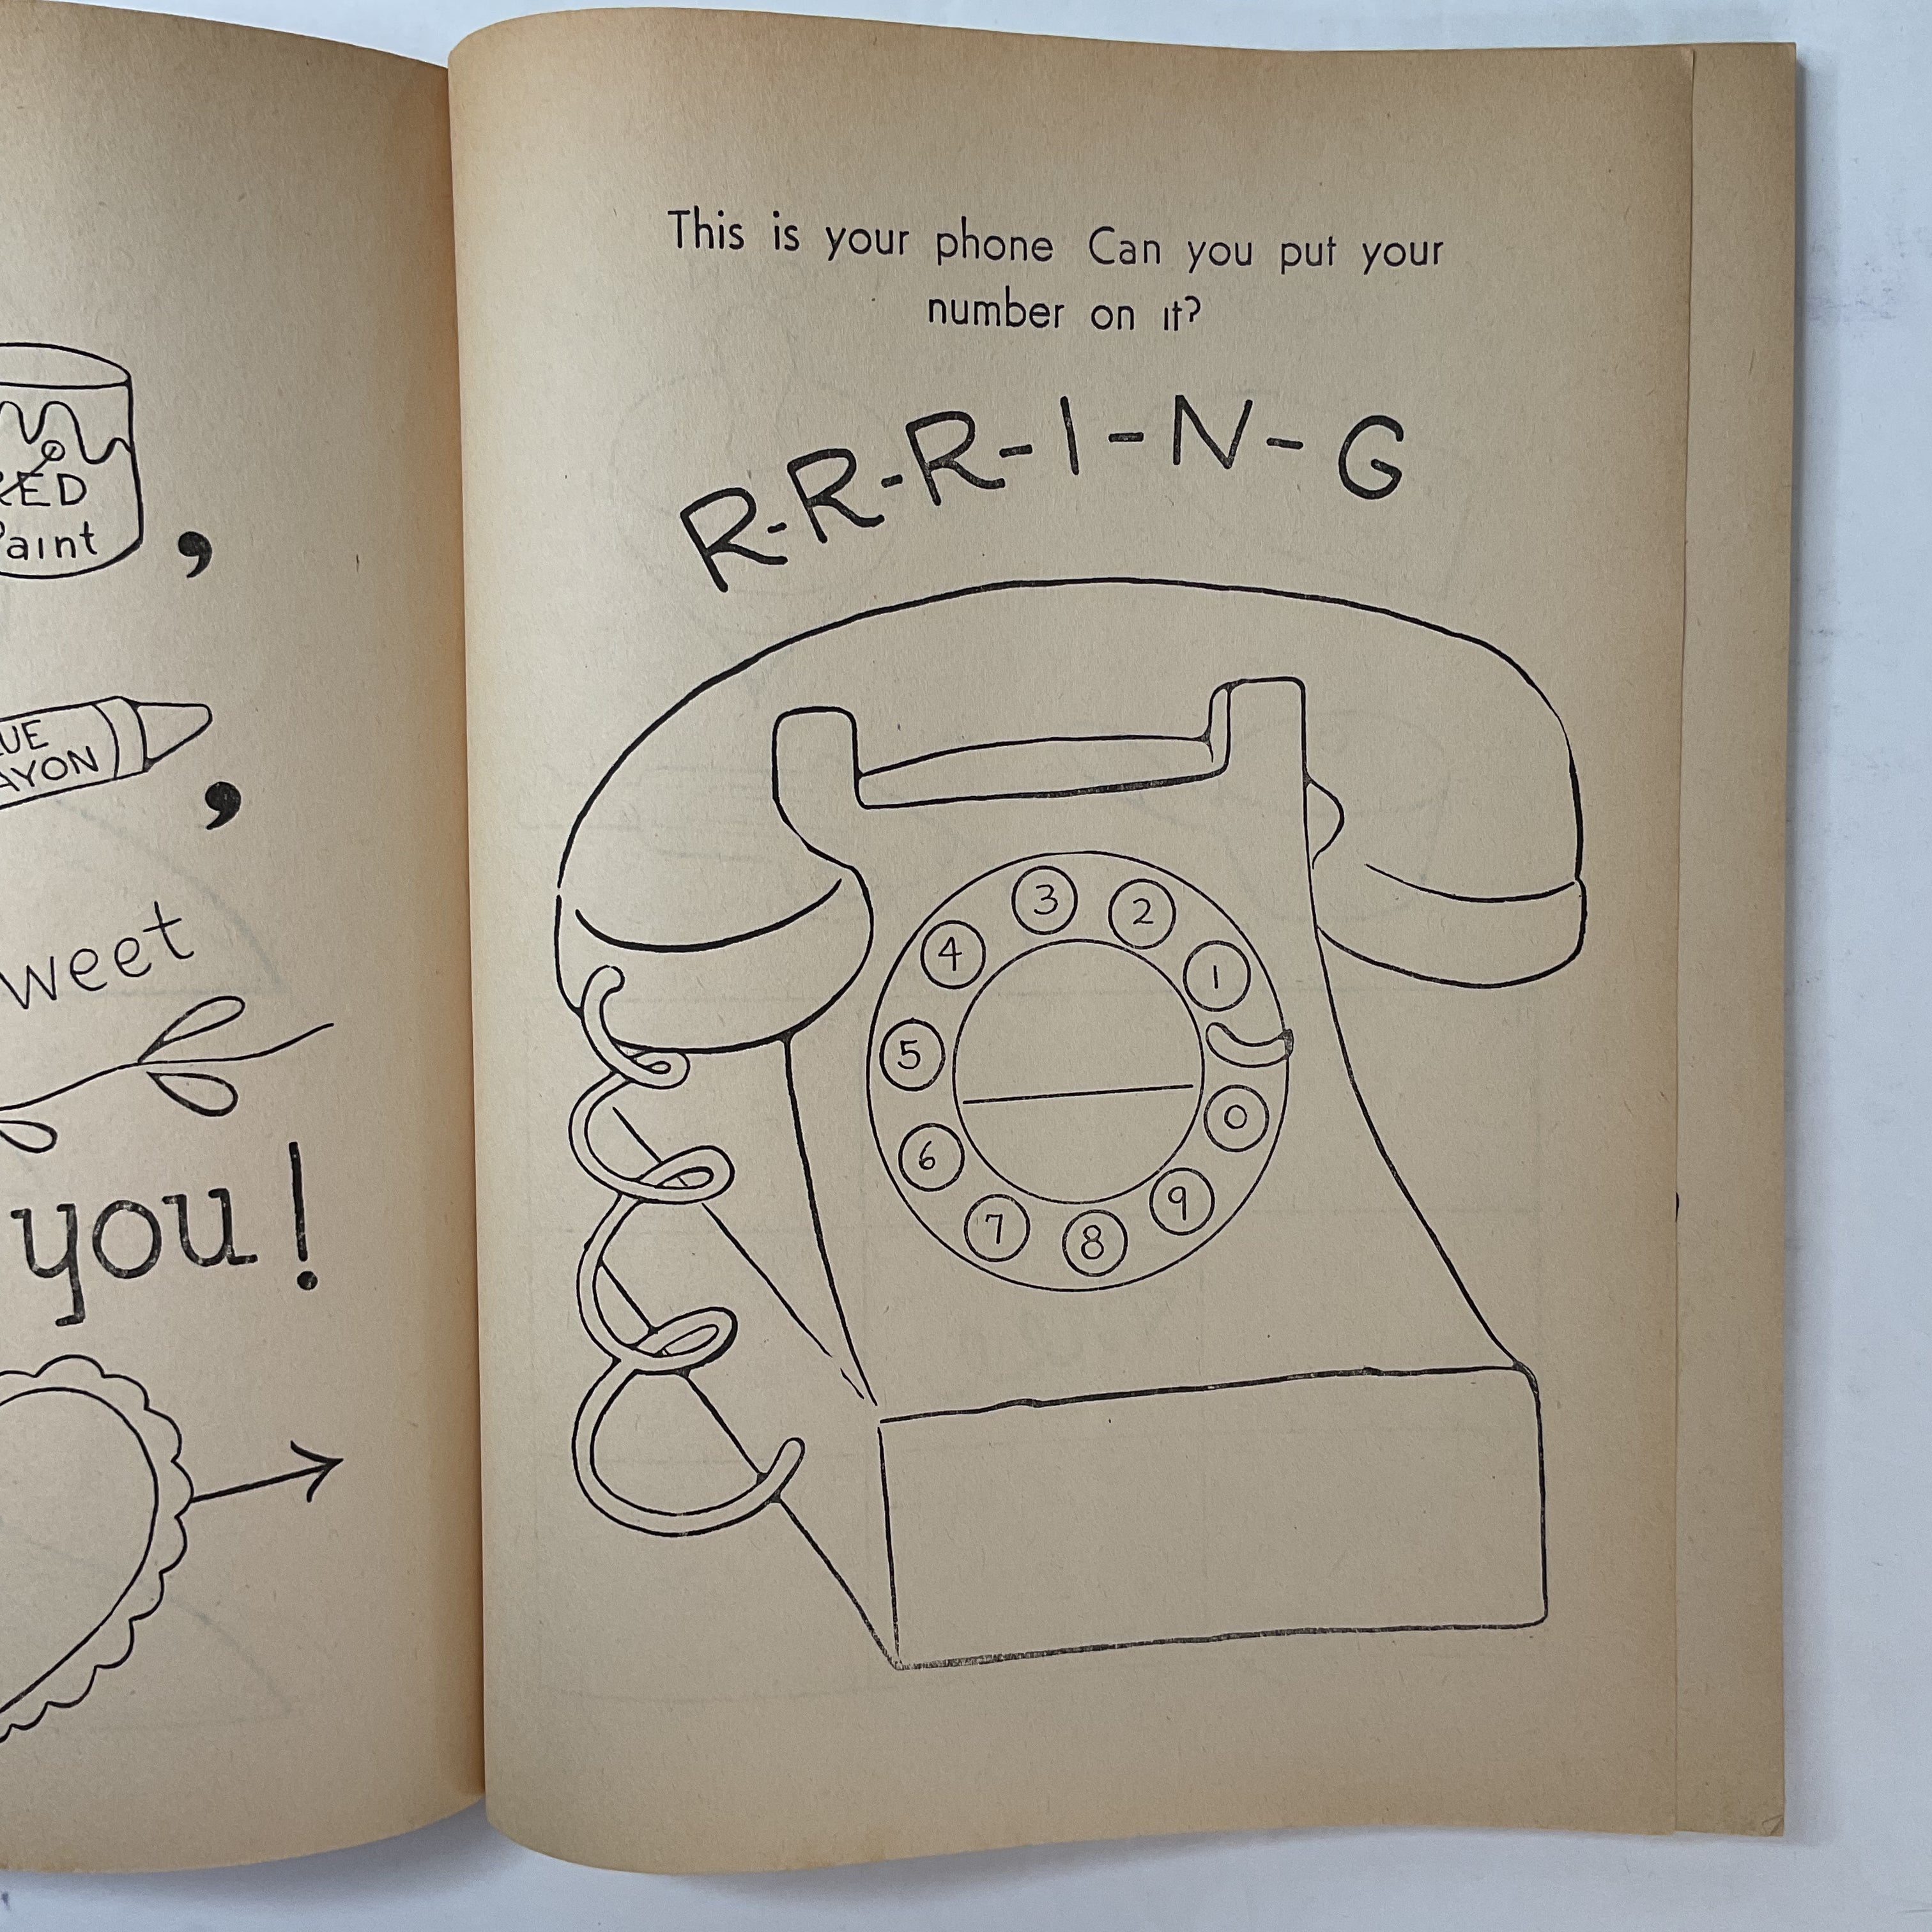 RED
Paint ,
,
you!
This is your phone Can you put your
number on it?
R-R-R-I-N-G
3
2
4
1
5
0
6
9
7
8